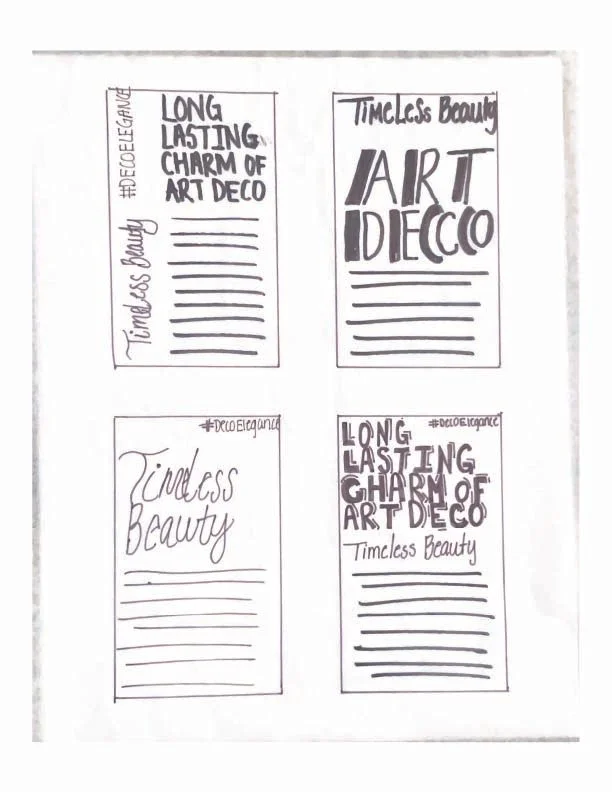 #DECOELEGANCE
Timeless Beauty
LONG
LASTING
CHARM OF
ART DECO
TimeLess Beauty
ART
DECO
#DecoElegance
Timeless
Beauty
#DecoElegance
LONG
LASTING
CHARM OF
ART DECO
Timeless Beauty